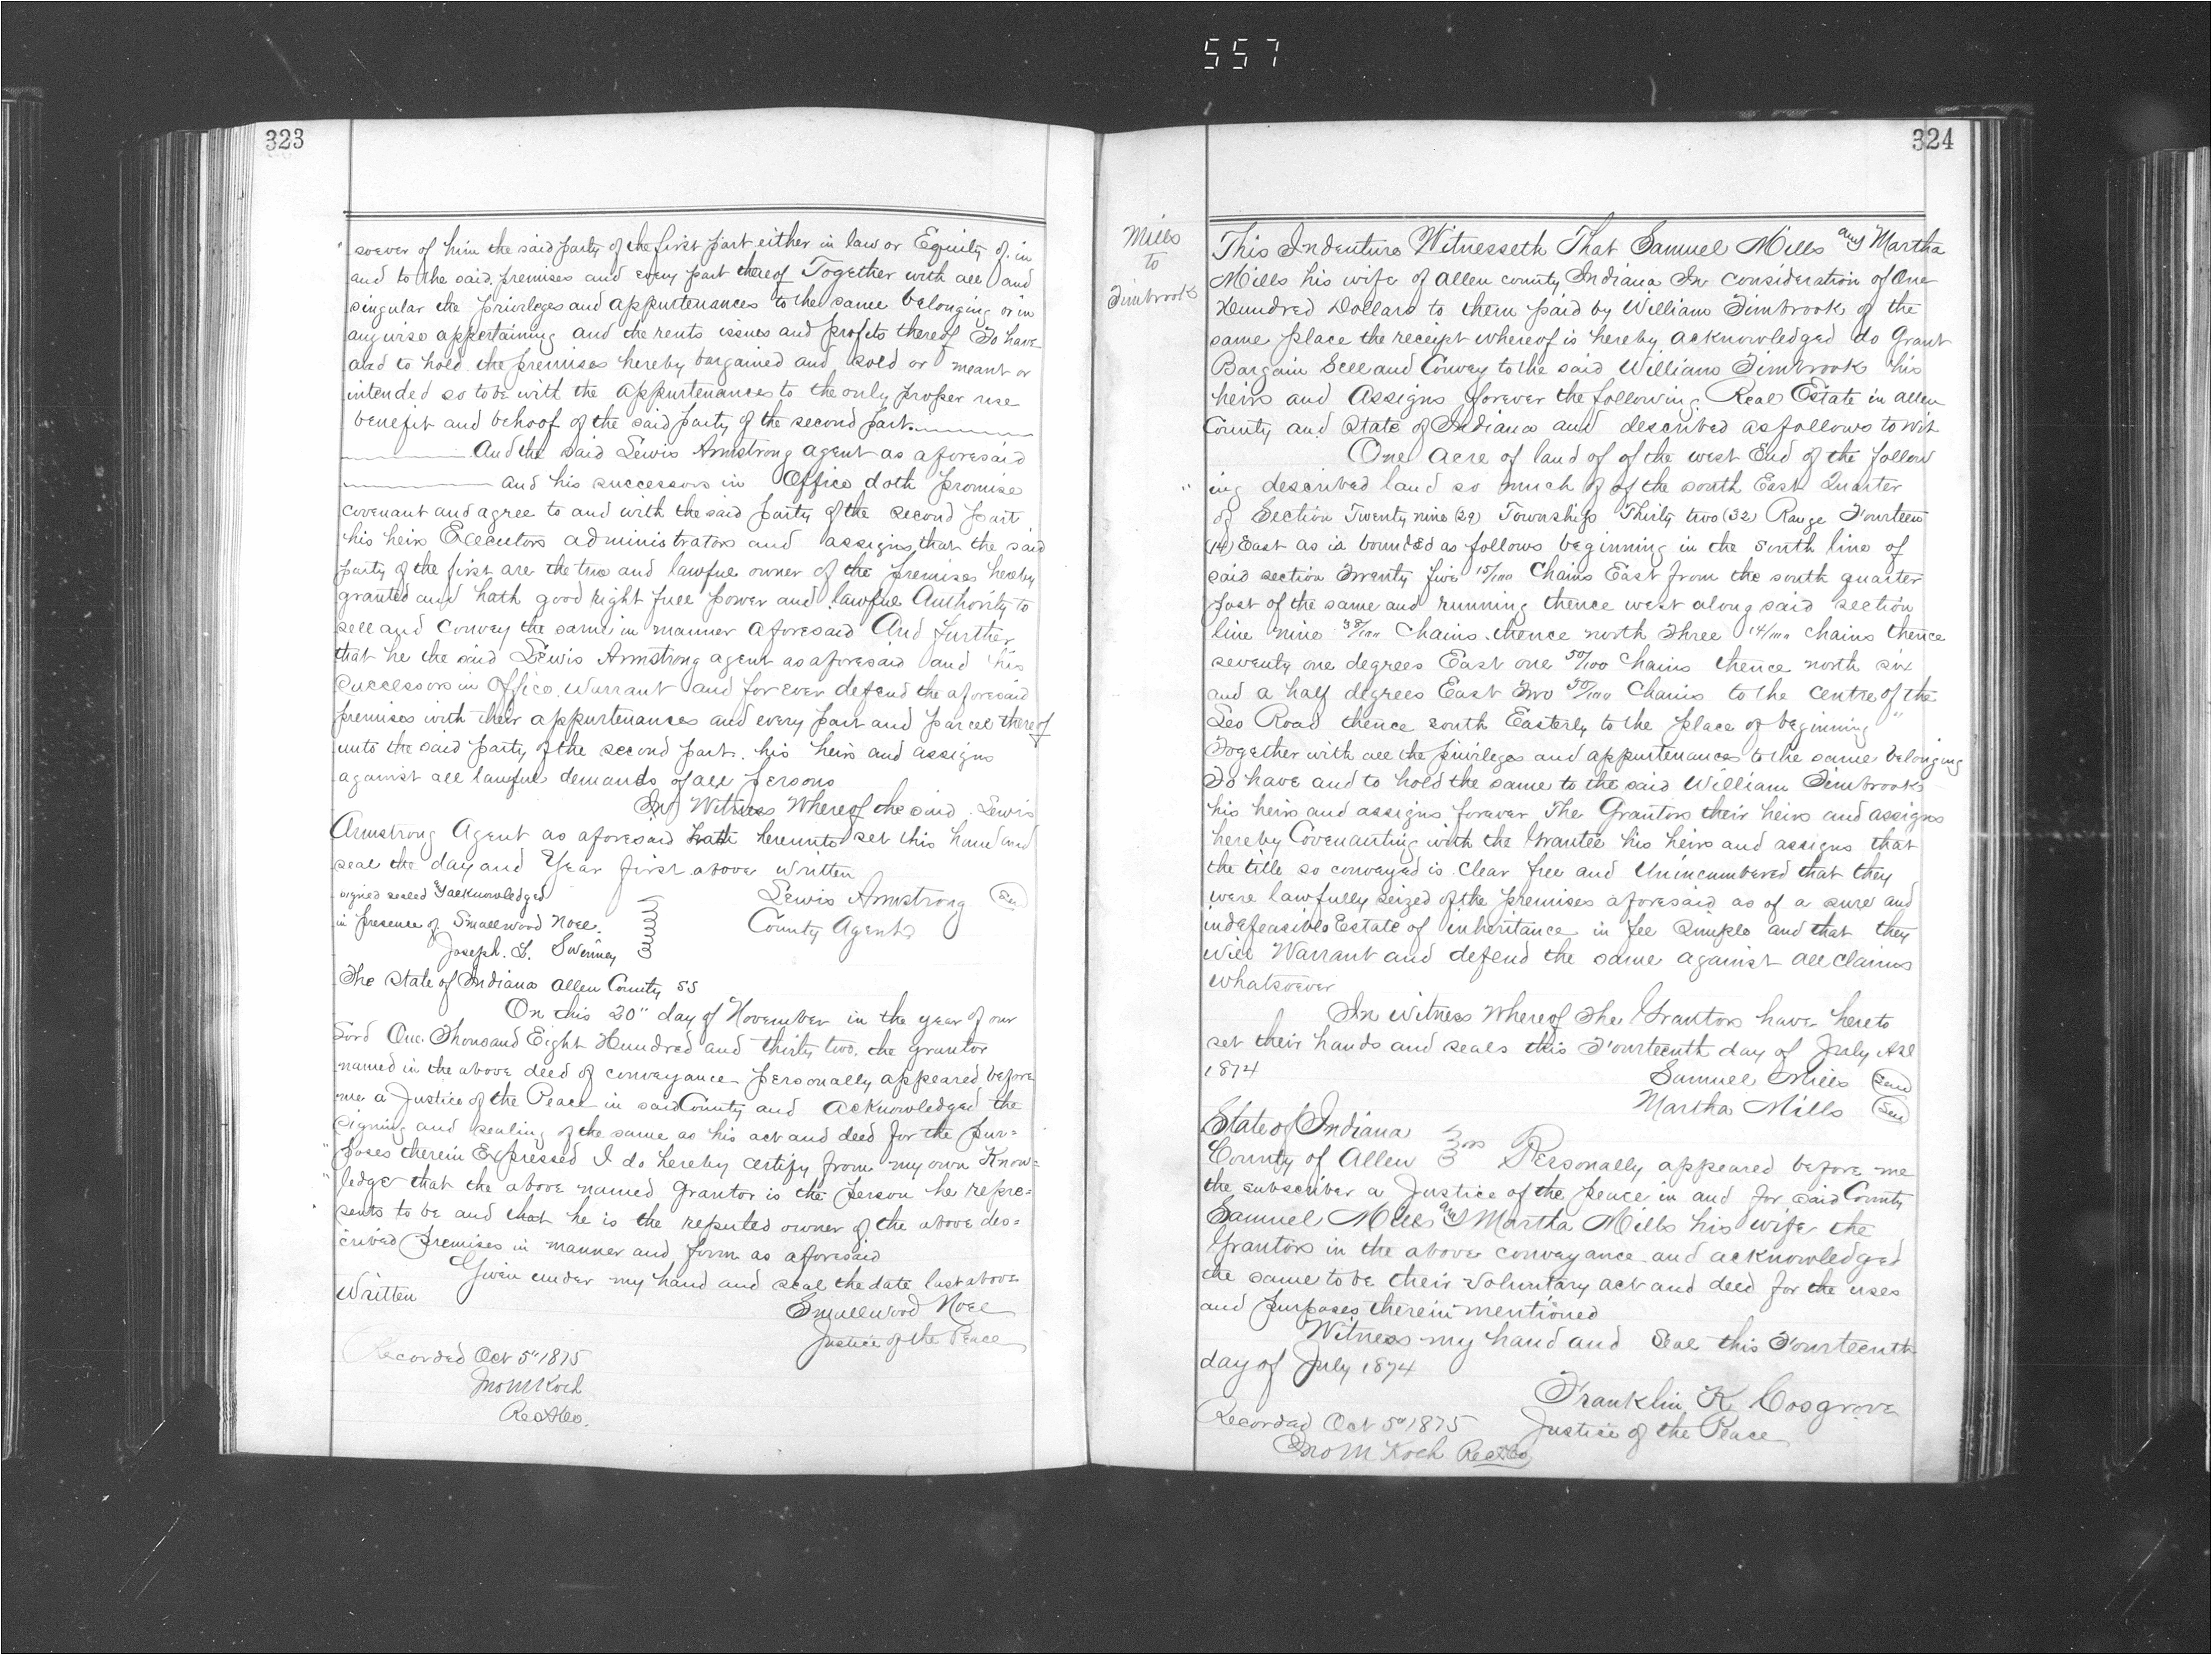 557
323
soever of him the said party of the first part either in law or Equity of. in
and to the said premises and every part thereof Together with all and
singular the privileges and appurtenances to the same belonging or in
anywise appertaining and the rents issues and profits thereof To have
and to hold the premises hereby bargained and sold or meant or
intended so to be with the appurtenances to the only proper use
benefit and behoof of the said party of the second part.
And the said Lewis Armstrong agent as aforesaid
and his successors in Office doth promise
covenant and agree to and with the said party of the second part
his heirs Executors administrators and assigns that the said
party of the first are the true and lawful owner of the premises hereby
granted and hath good right full power and lawful Authority to
sell and convey the same in manner aforesaid And further
that he the said Lewis Armstrong agent as aforesaid and his
successors in Office. Warrant and forever defend the aforesaid
premises with their appurtenances and every part and parcel thereof
unto the said party of the second part. his heirs and assigns
against all lawful demands of all persons
In Witness Whereof the said Lewis
Armstrong Agent as aforesaid hath hereunto set his hand and
seal the day and Year first above written
signed sealed & acknowledged
in presence of Smallwood Noel.
Joseph. L. Swinney
Lewis Armstrong Seal
County Agent
The State of Indiana Allen County SS
On this 20" day of November in the year of our
Lord One Thousand Eight Hundred and thirty two. the grantor
named in the above deed of conveyance personally appeared before
me a Justice of the Peace in said County and acknowledged the
signing and sealing of the same as his act and deed for the pur=
poses therein Expressed I do hereby certify from my own Know=
ledge that the above named grantor is the person he repre=
sents to be and that he is the reputed owner of the above des=
cribed premises in manner and form as aforesaid
Given under my hand and seal the date last above
Written
Smallwood Noel
Justice of the Peace
Recorded Oct 5" 1875
Jno M Koch
Rec A Co.
324
Mills
to
Timbrook
This Indenture Witnesseth That Samuel Mills and Martha
Mills his wife of Allen county Indiana In consideration of One
Hundred Dollars to them paid by William Timbrook of the
same place the receipt whereof is hereby acknowledged do Grant
Bargain Sell and Convey to the said William Timbrook his
heirs and Assigns forever the following Real Estate in allen
County and State of Indiana and described as follows to wit
One acre of land of of the west End of the follow
ing described land so much of of the south East Quarter
of Section Twenty nine (29) Township Thirty two (32) Range Fourteen
(14) East as is bounded as follows beginning in the south line of
said section Twenty five 15/100 Chains East from the south quarter
post of the same and running thence west along said section
line nine 38/100 Chains thence north Three 14/100 chains thence
seventy one degrees East one 50/100 Chains thence north six
and a half degrees East Two 50/100 Chains to the centre of the
Leo Road thence south Easterly to the place of beginning "
Together with all the privileges and appurtenances to the same belonging
To have and to hold the same to the said William Timbrook
his heirs and assigns forever The Grantors their heirs and assigns
hereby Covenanting with the Grantee his heirs and assigns that
the title so conveyed is Clear free and Unincumbered that they
were lawfully seized of the premises aforesaid as of a sure and
indefeasible Estate of inheritance in fee Simple and that they
will Warrant and defend the same against all claims
whatsoever
In witness Whereof The Grantors have hereto
set their hands and seals this Fourteenth day of July
1874
Samuel Mills Seal
Martha Mills Seal
State of Indiana
County of Allen ss Personally appeared before me
the subscriber a Justice of the peace in and for said County
Samuel Mills and Martha Mills his wife the
Grantors in the above conveyance and acknowledged
the same to be their voluntary act and deed for the uses
and purposes therein mentioned
Witness my hand and Seal this Fourteenth
day of July 1874
Franklin K Cosgrove
Justice of the Peace
Recorded Oct 5" 1875
Jno M Koch Rec A Co